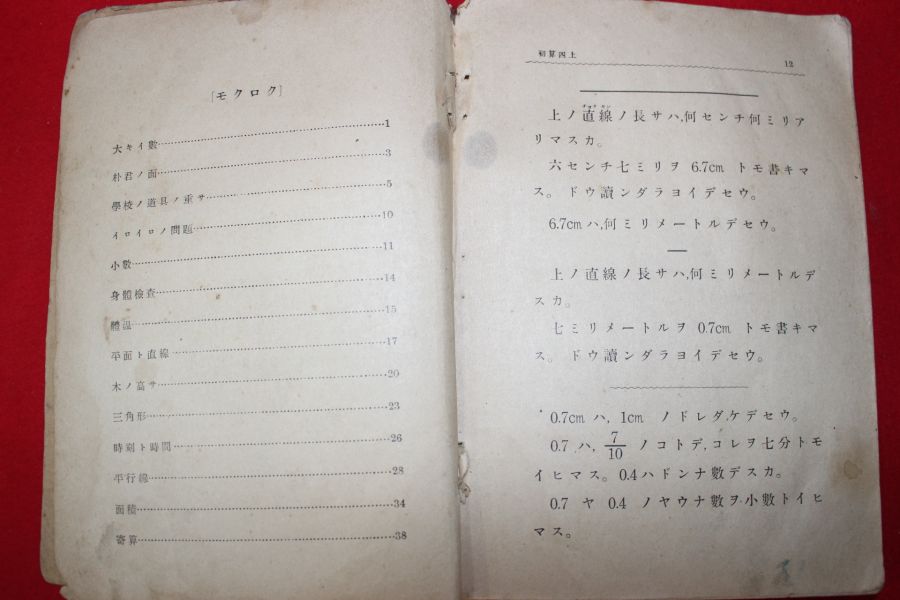 [モクロク]
大キイ數……………1
朴君ノ面……………3
學校ノ道具ノ重サ……………5
イロイロノ問題……………10
小數……………11
身體檢査……………14
體溫……………15
平面ト直線……………17
木ノ高サ……………20
三角形……………23
時刻ト時間……………26
平行線……………28
面積……………34
寄算……………38
初算四上 12
上ノ直線ノ長サハ,何センチ何ミリア
リマスカ。
六センチ七ミリヲ 6.7cm トモ書キマ
ス。ドウ讀ンダラヨイデセウ。
6.7cmハ,何ミリメートルデセウ。
上ノ直線ノ長サハ,何ミリメートルデ
スカ。
七ミリメートルヲ 0.7cm トモ書キマ
ス。ドウ讀ンダラヨイデセウ。
0.7cm ハ, 1cm ノドレダケデセウ。
0.7 ハ, 7/10 ノコトデ,コレヲ七分トモ
イヒマス。0.4ハドンナ數デスカ。
0.7 ヤ 0.4 ノヤウナ數ヲ小數トイヒ
マス。